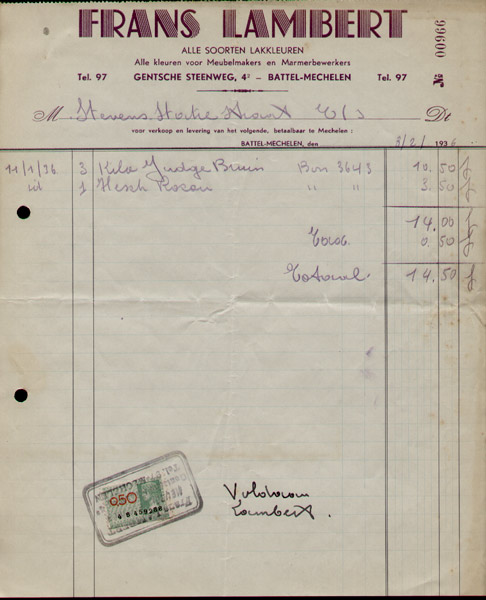 FRANS LAMBERT
ALLE SOORTEN LAKKLEUREN
Alle kleuren voor Meubelmakers en Marmerbewerkers
Tel. 97 GENTSCHE STEENWEG, 4ᴮ – BATTEL-MECHELEN Tel. 97
№ 00966
M Stevens Statie Straat E/S Dt
voor verkoop en levering van het volgende, betaalbaar te Mechelen :
BATTEL-MECHELEN, den 3/2/ 1936
11/1/36 3 Kilo Bruin Bon 3643 10.50 f
id 1 Flesch " " 3.50 f
14.00 f
0.50 f
Totaal 14.50 f
0,50
Voldaan
Lambert.